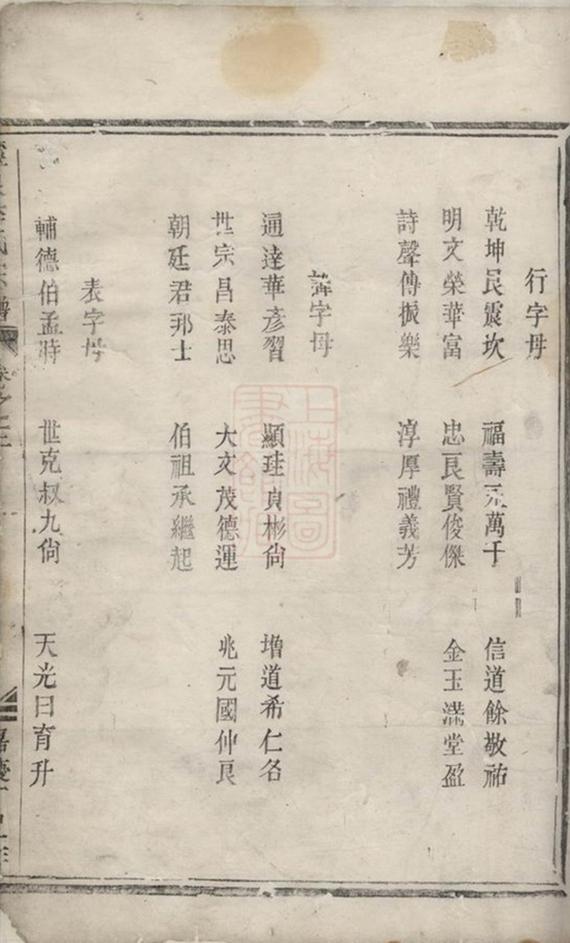 行字母
乾坤艮震坎 福壽元萬千 信道餘敬祐
明文榮華富 忠良賢俊傑 金玉滿堂盈
詩聲傳振樂 淳厚禮義芳
諱字母
通達華彥習 顯珪貞彬尙 增道希仁名
世宗昌泰思 大文茂德運 兆元國仲良
朝廷君邦士 伯祖承繼起
表字母
輔德伯孟時 世克叔九尙 天光日育升
上海圖書館藏